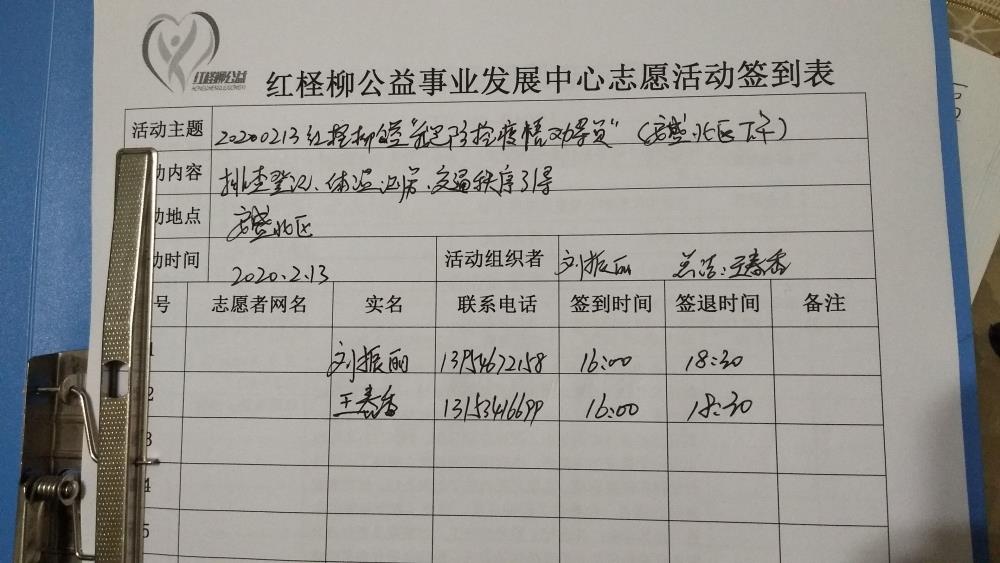 红柽柳公益
HONGCHENGLIUGONGYI
红柽柳公益事业发展中心志愿活动签到表
活动主题 20200213红柽柳公益"我是防控疫情劝导员"(安盛北区下午)
动内容 排查登记、体温记录、交通秩序引导
动地点 安盛北区
动时间 2020.2.13 活动组织者 刘振丽 总结:王春香
号 志愿者网名 实名 联系电话 签到时间 签退时间 备注
1 刘振丽 13954672158 16:00 18:30
2 王春香 13153416699 16:00 18:30
3
4
5